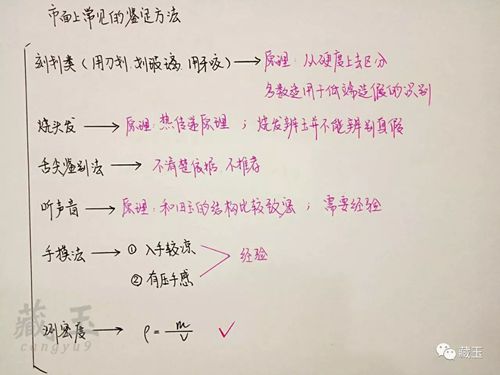 市面上常见的鉴定方法
刻划类(用刀划,划玻璃,用牙咬) → 原理:从硬度上去区分
多数适用于低端造假的识别
烧头发 → 原理:热传递原理;烧发辨玉并不能辨别真假
舌尖鉴别法 → 不清楚依据,不推荐
听声音 → 原理:和田玉的结构比较致密;需要经验
手摸法 → ① 入手较凉
② 有压手感
经验
测密度 → ρ = m/V ✓
藏玉
cangyu9
藏玉